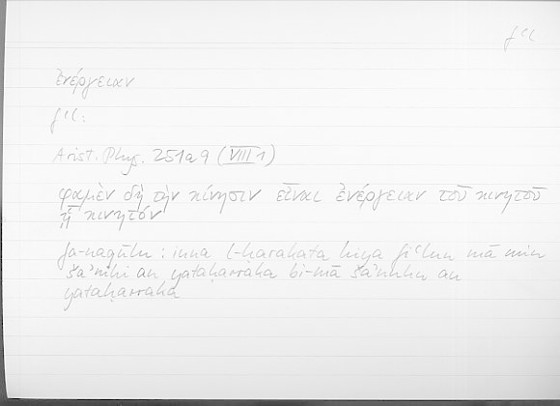 fʿl
ἐνέργειαν
fʿl:
Arist. Phys. 251a9 (VIII 1)
φαμὲν δὴ τὴν κίνησιν εἶναι ἐνέργειαν τοῦ κινητοῦ
ᾗ κινητόν
fa-naqūlu : inna l-ḥarakata hiya fiʿlu mā min
šaʾnihi an yataḥarraka bi-mā šaʾnuhu an
yataḥarraka